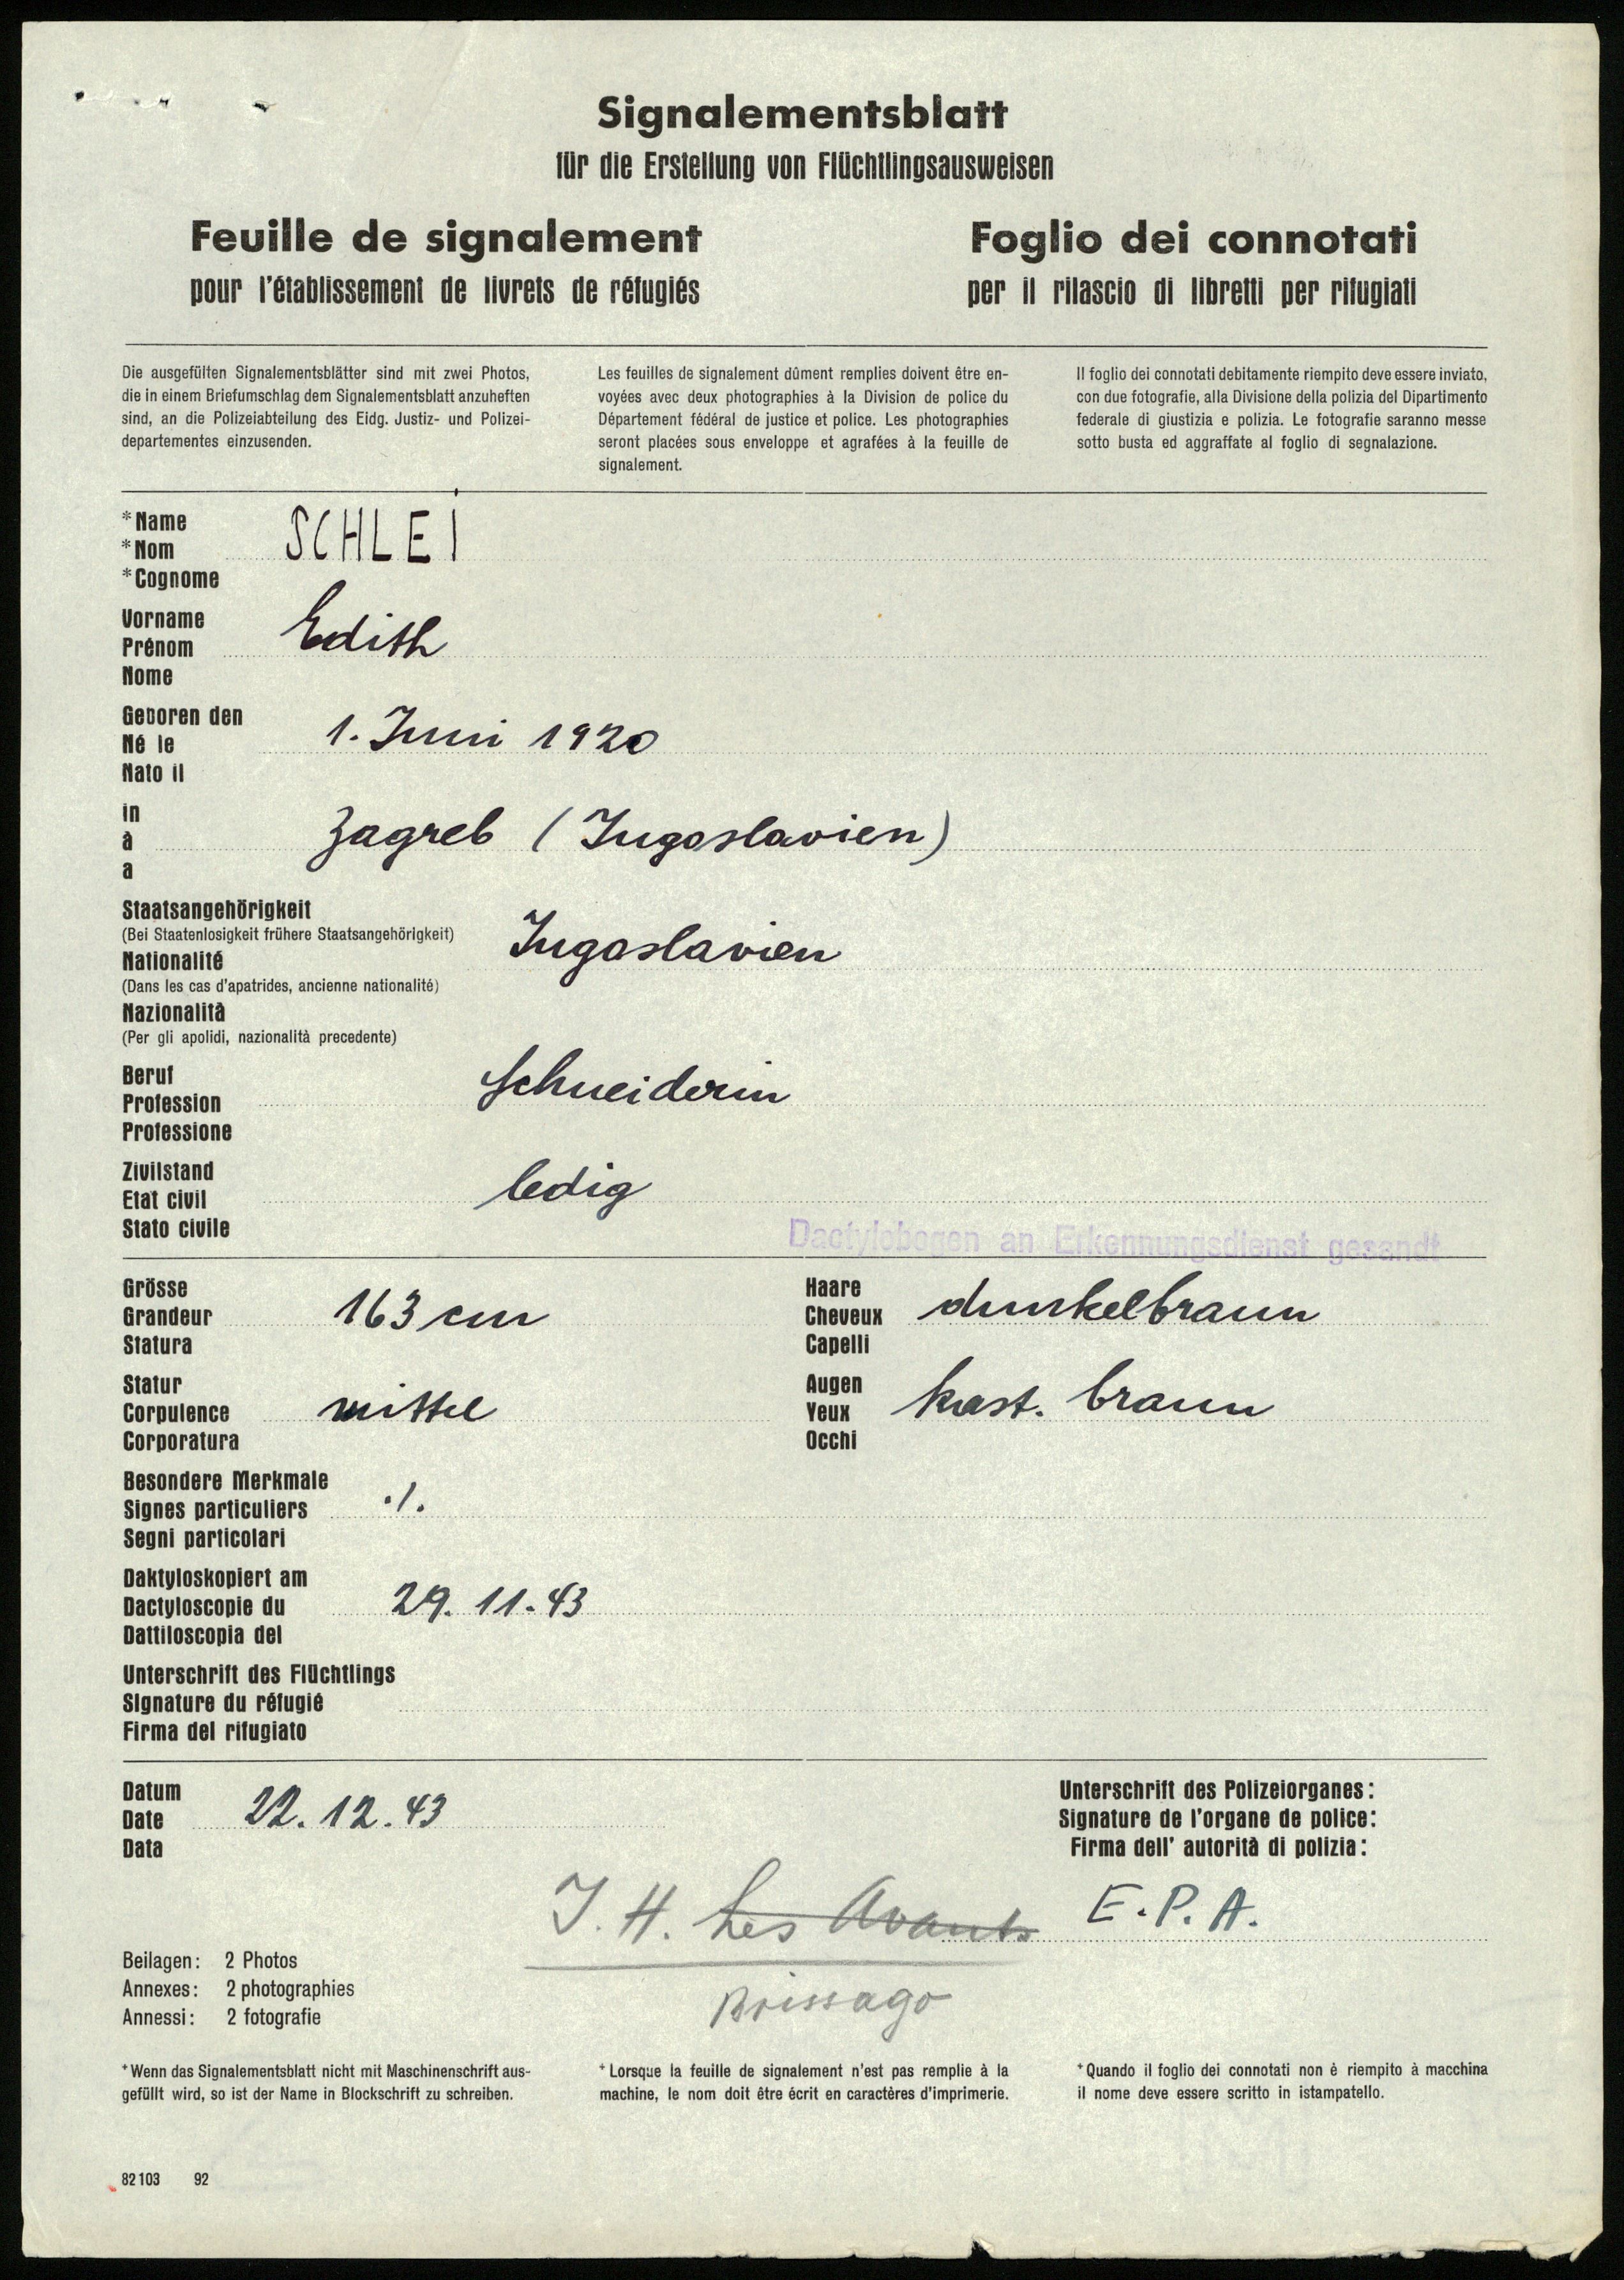 Signalementsblatt
für die Erstellung von Flüchtlingsausweisen
Feuille de signalement
pour l'établissement de livrets de réfugiés
Foglio dei connotati
per il rilascio di libretti per rifugiati
Die ausgefüllten Signalementsblätter sind mit zwei Photos,
die in einem Briefumschlag dem Signalementsblatt anzuheften
sind, an die Polizeiabteilung des Eidg. Justiz- und Polizei-
departementes einzusenden.
Les feuilles de signalement dûment remplies doivent être en-
voyées avec deux photographies à la Division de police du
Département fédéral de justice et police. Les photographies
seront placées sous enveloppe et agrafées à la feuille de
signalement.
Il foglio dei connotati debitamente riempito deve essere inviato,
con due fotografie, alla Divisione della polizia del Dipartimento
federale di giustizia e polizia. Le fotografie saranno messe
sotto busta ed aggraffate al foglio di segnalazione.
*Name
*Nom SCHLEI
*Cognome
Vorname
Prénom Edith
Nome
Geboren den
Né le 1. Juni 1920
Nato il
in
à Zagreb (Jugoslavien)
a
Staatsangehörigkeit
(Bei Staatenlosigkeit frühere Staatsangehörigkeit)
Nationalité Jugoslavien
(Dans les cas d'apatrides, ancienne nationalité)
Nazionalità
(Per gli apolidi, nazionalità precedente)
Beruf
Profession Schneiderin
Professione
Zivilstand
Etat civil ledig
Stato civile
Dactylobogen an Erkennungsdienst gesandt
Grösse
Grandeur 163 cm
Statura
Haare
Cheveux dunkelbraun
Capelli
Statur
Corpulence mittel
Corporatura
Augen
Yeux kast. braun
Occhi
Besondere Merkmale
Signes particuliers ./.
Segni particolari
Daktyloskopiert am
Dactyloscopie du 29. 11. 43
Dattiloscopia del
Unterschrift des Flüchtlings
Signature du réfugié
Firma del rifugiato
Datum
Date 22. 12. 43
Data
Unterschrift des Polizeiorganes:
Signature de l'organe de police:
Firma dell' autorità di polizia:
J. H. Les Avants E. P. A.
Brissago
Beilagen: 2 Photos
Annexes: 2 photographies
Annessi: 2 fotografie
+Wenn das Signalementsblatt nicht mit Maschinenschrift aus-
gefüllt wird, so ist der Name in Blockschrift zu schreiben.
+Lorsque la feuille de signalement n'est pas remplie à la
machine, le nom doit être écrit en caractères d'imprimerie.
+Quando il foglio dei connotati non è riempito à macchina
il nome deve essere scritto in istampatello.
82103 92